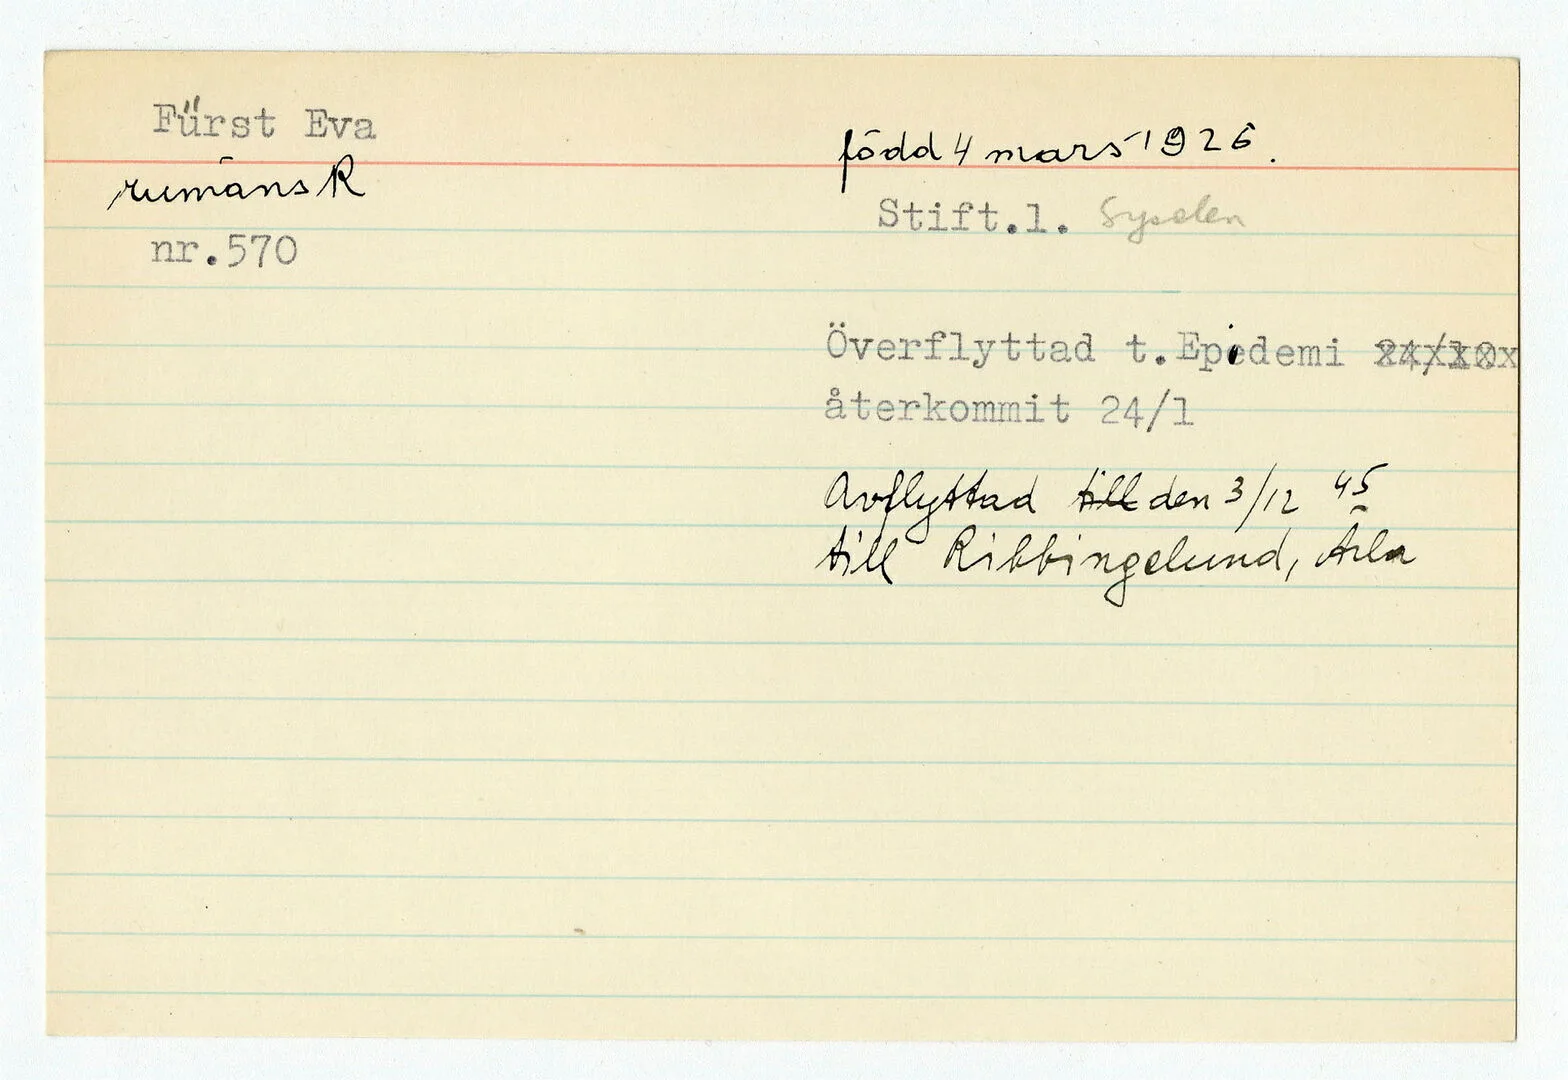 Fürst Eva
född 4 mars 1926.
rumänsk
Stift.l. Sysslen
nr.570
Överflyttad t.Epidemi 24/10
återkommit 24/1
Avflyttad till den 3/12 45
till Ribbingelund, Ärla